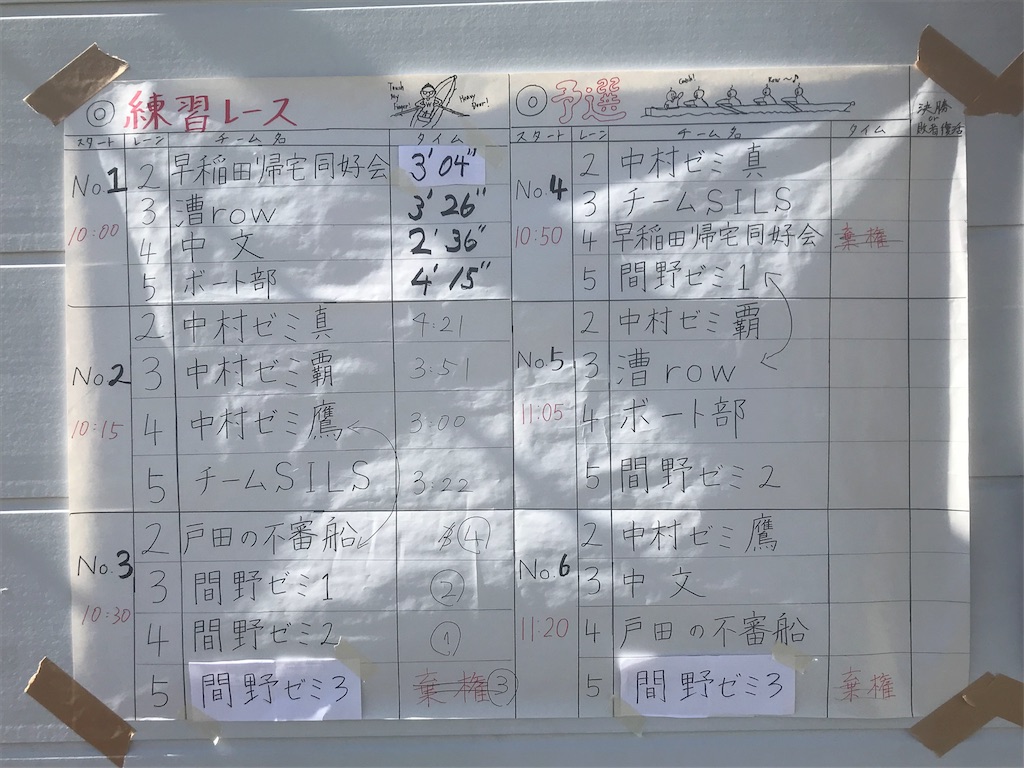 ◎ 練習レース
Teach My Finger!
Heavy Dear!
スタート レーン チーム名 タイム
No.1 10:00
2 早稲田帰宅同好会 3'04"
3 漕row 3'26"
4 中文 2'36"
5 ボート部 4'15"
No.2 10:15
2 中村ゼミ真 4:21
3 中村ゼミ覇 3:51
4 中村ゼミ鷹 3:00
5 チームSILS 3:22
No.3 10:30
2 戸田の不審船 ④
3 間野ゼミ1 ②
4 間野ゼミ2 ①
5 間野ゼミ3 棄権 ③
◎ 予選
Catch!
Row〜♪
スタート レーン チーム名 タイム 決勝 or 敗者復活
No.4 10:50
2 中村ゼミ真
3 チームSILS
4 早稲田帰宅同好会 棄権
5 間野ゼミ1
No.5 11:05
2 中村ゼミ覇
3 漕row
4 ボート部
5 間野ゼミ2
No.6 11:20
2 中村ゼミ鷹
3 中文
4 戸田の不審船
5 間野ゼミ3 棄権